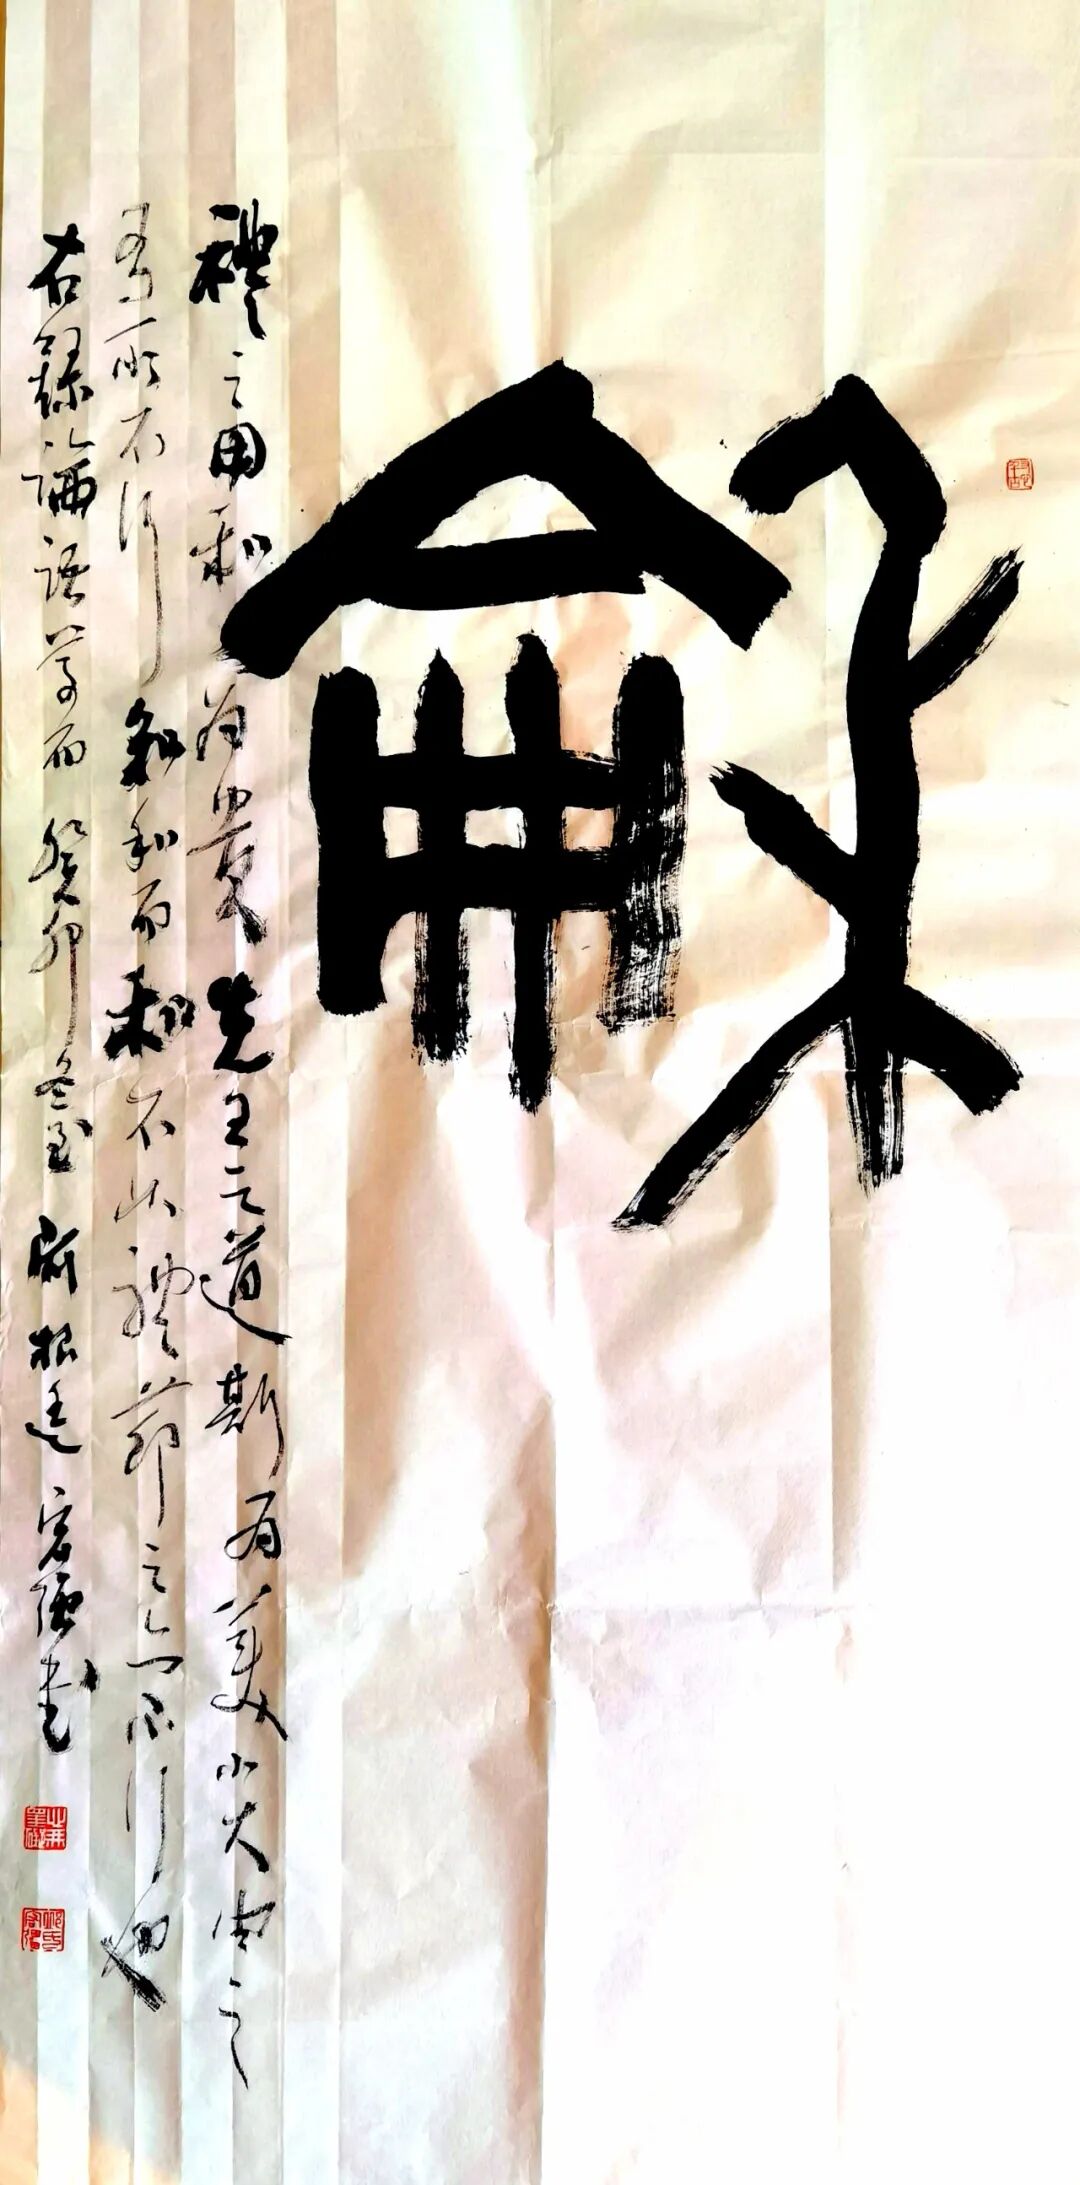 龢
禮之用和为貴先王之道斯为美小大由之
有所不行知和而和不以禮節之亦不行也
右録論語學而 癸卯冬至 宏強書